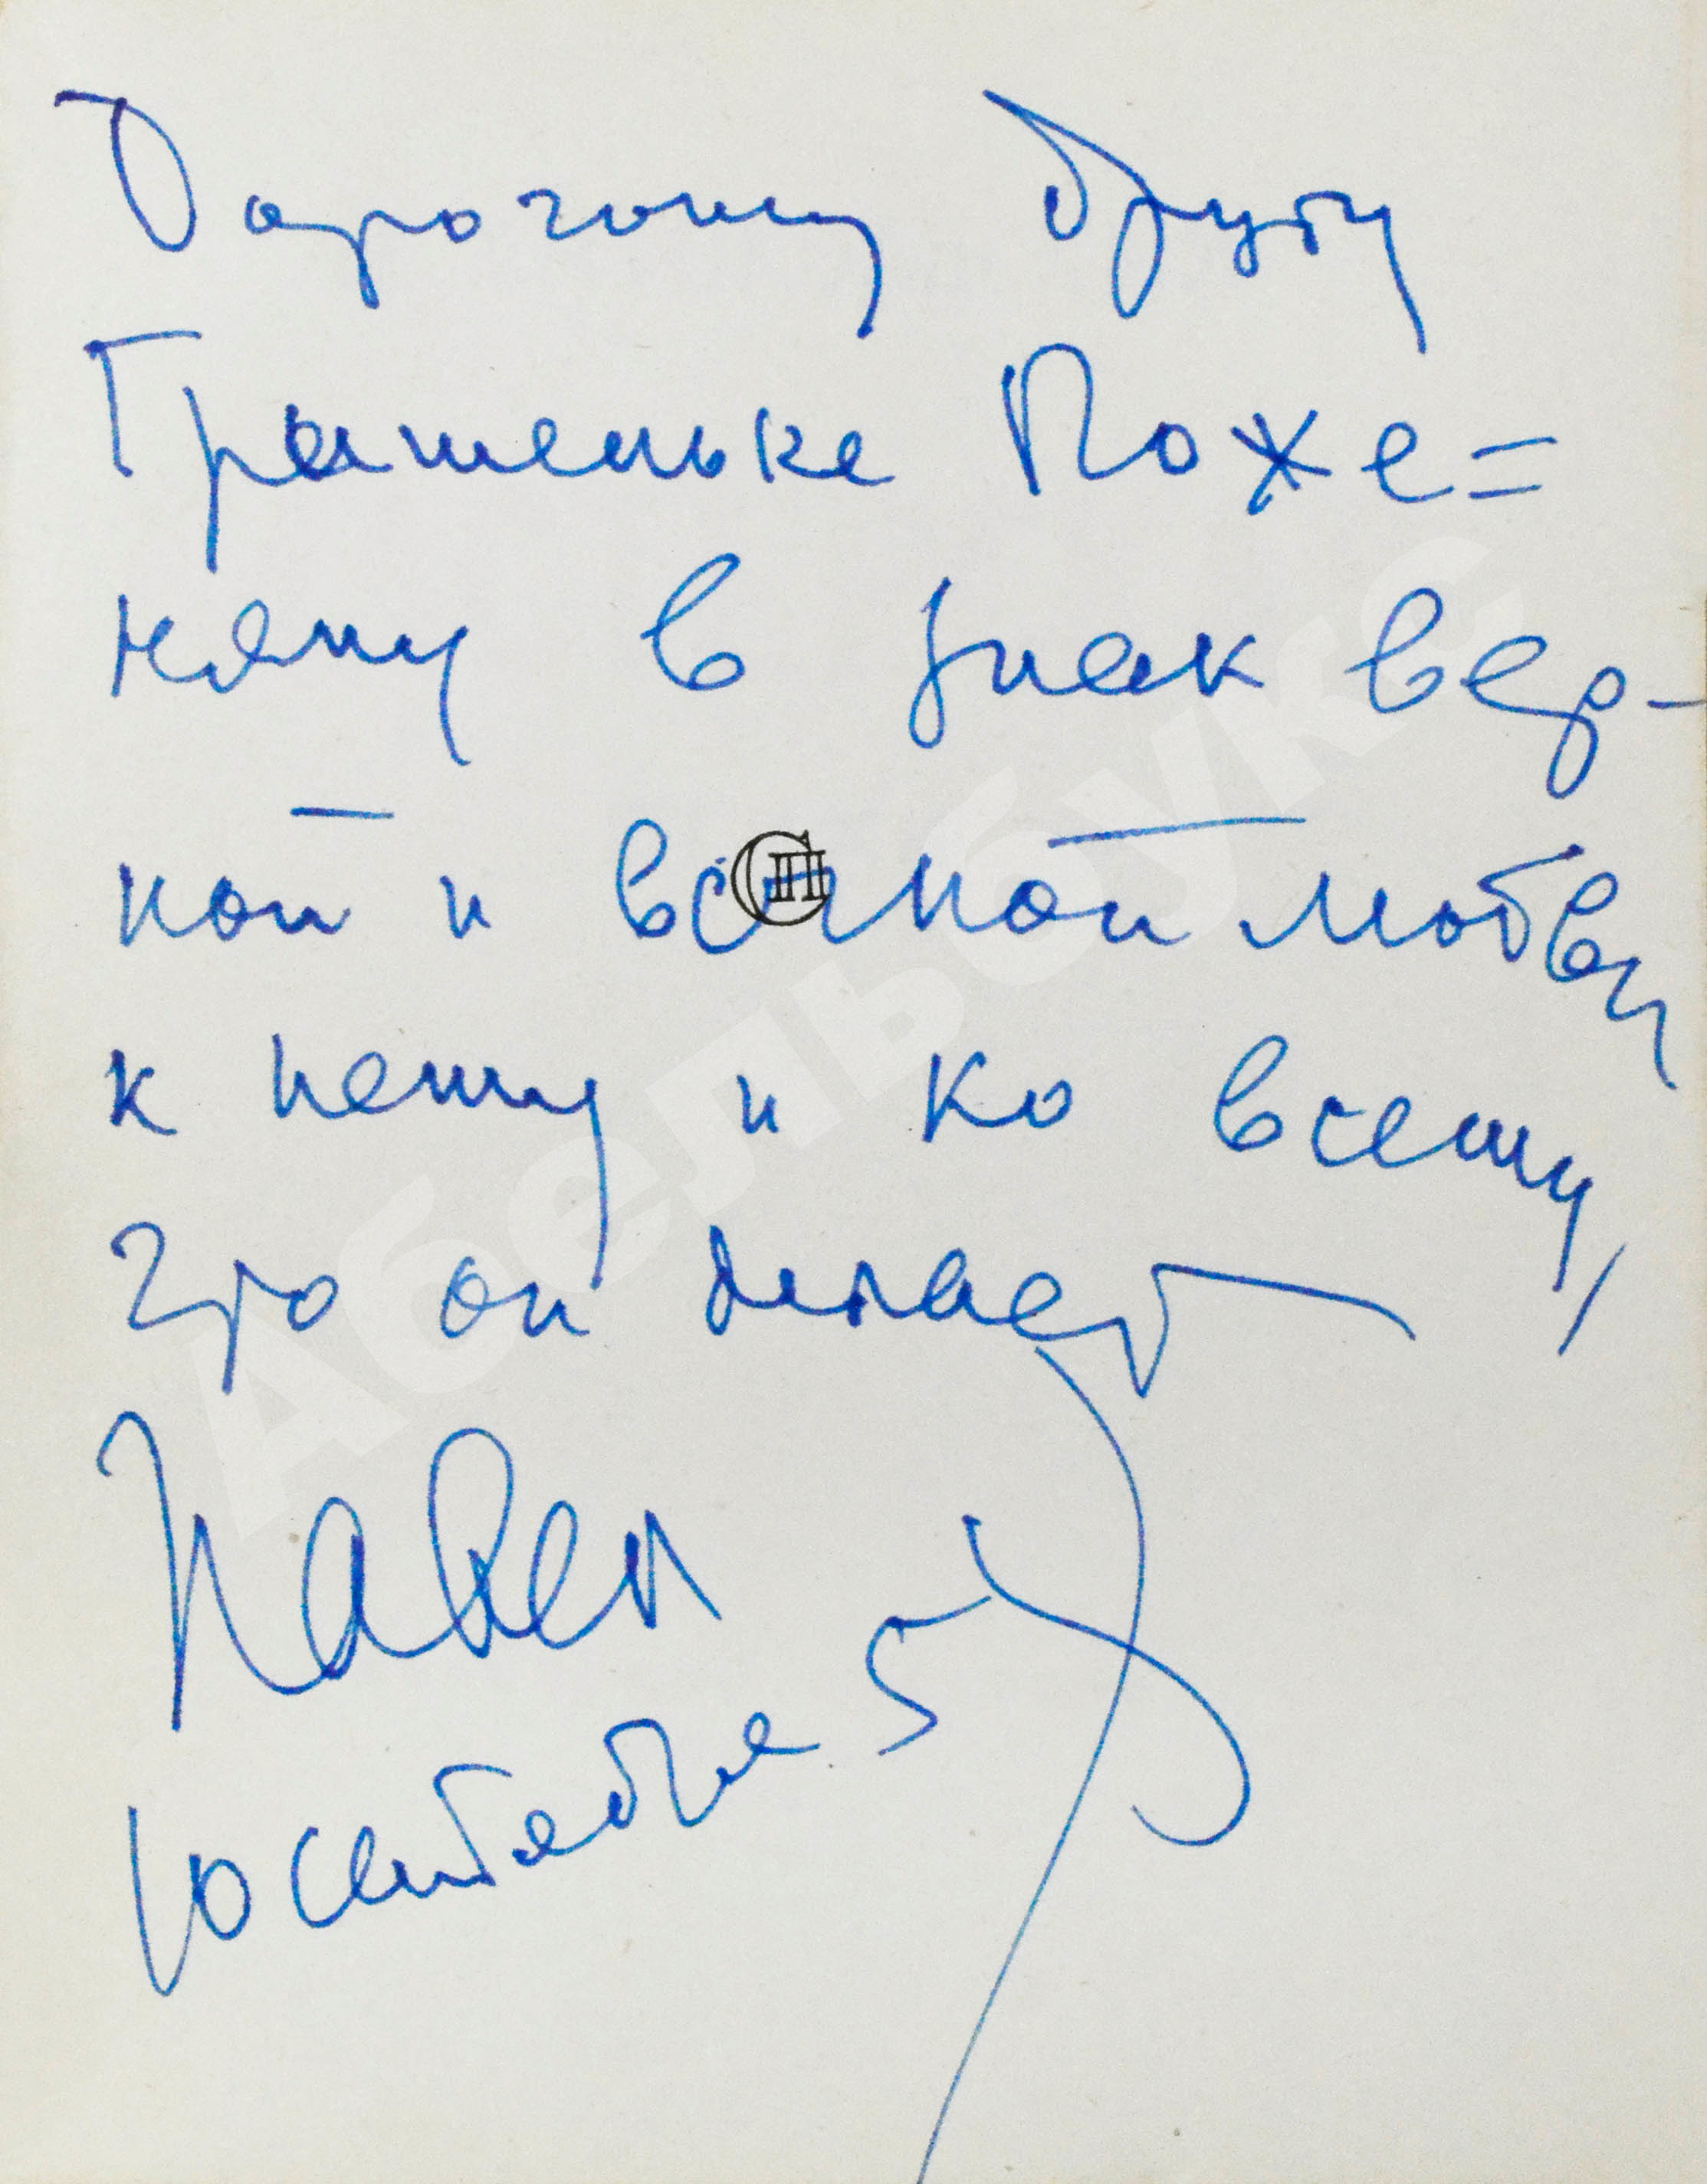 Дорогому другу
Гришеньке Поже=
няну в знак вер-
ной и любви
к нему и ко всему,
что он делает
Павел
10 сентября
СП
Абельбукс